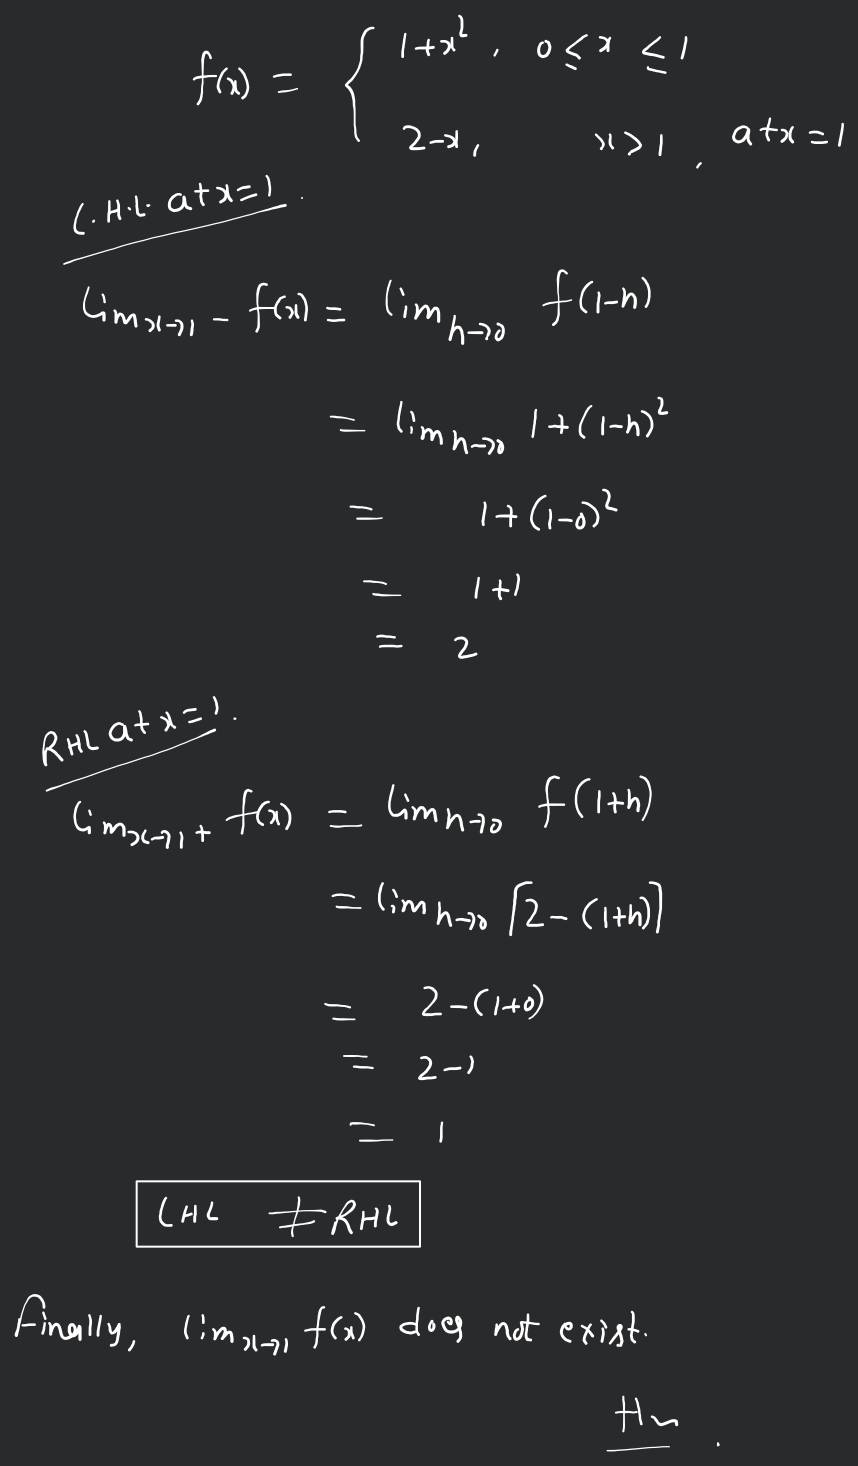 f(x) = { 1+x², 0 ≤ x ≤ 1
2-x, x > 1, at x = 1
L.H.L. at x=1.
lim x→1- f(x) = lim h→0 f(1-h)
= lim h→0 1+(1-h)²
= 1+(1-0)²
= 1+1
= 2
RHL at x=1.
lim x→1+ f(x) = lim h→0 f(1+h)
= lim h→0 [2-(1+h)]
= 2-(1+0)
= 2-1
= 1
LHL ≠ RHL
Finally, lim x→1 f(x) does not exist.